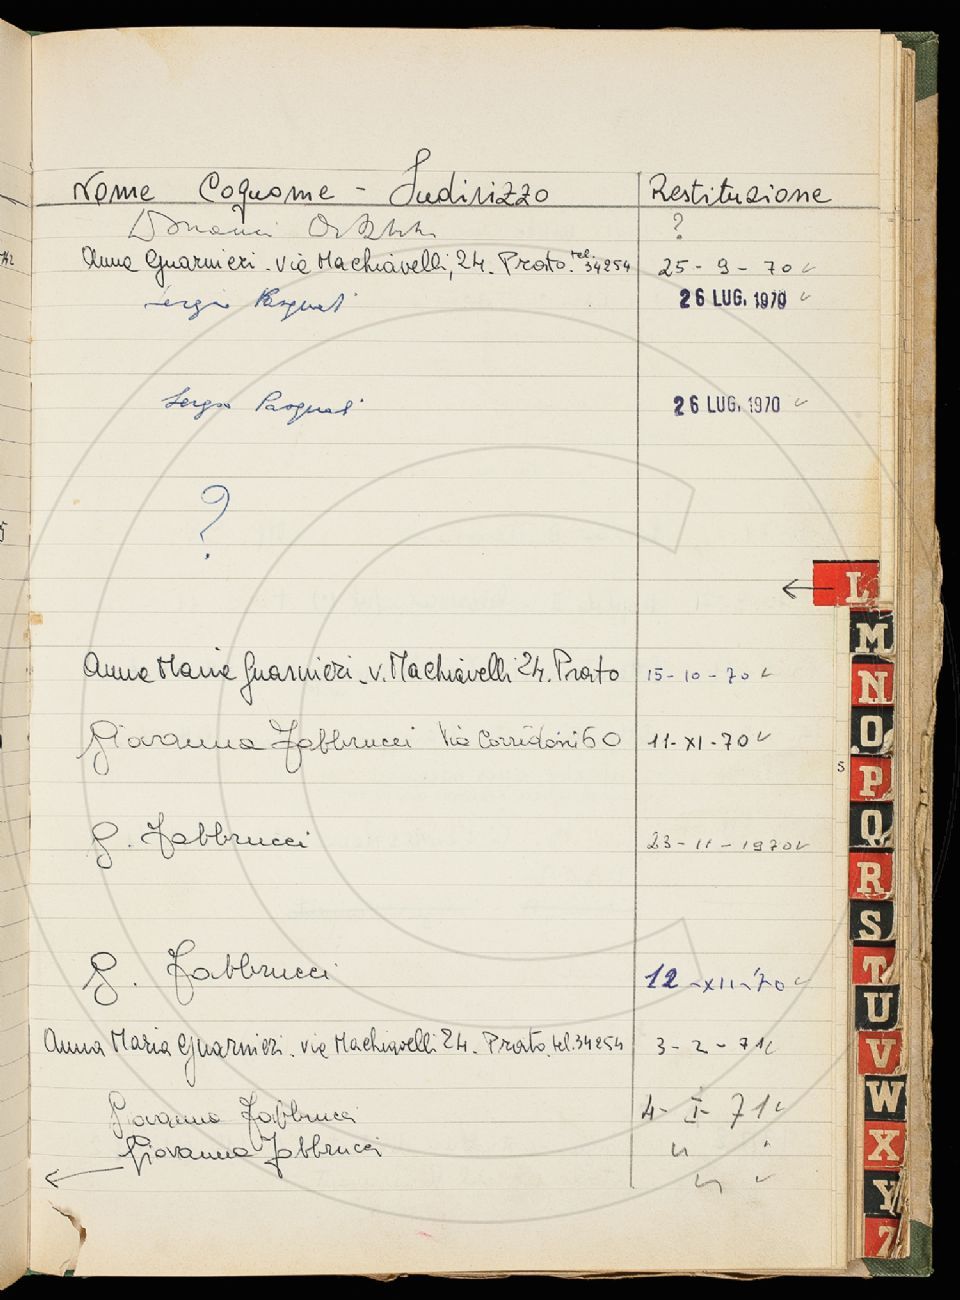 Nome Cognome - Indirizzo Restituzione
?
Anna Guarnieri - via Machiavelli, 24. Prato. tel. 34254 25 - 9 - 70 ✓
Sergio Pasquali 26 LUG. 1970 ✓
Sergio Pasquali 26 LUG. 1970 ✓
?
← L
M
Anna Maria Guarnieri - v. Machiavelli 24. Prato 15 - 10 - 70 ✓
N
Giovanna Fabbrucci Via Corridoni 60 11 - XI - 70 ✓
O
S
P
Q
G. Fabbrucci 23 - 11 - 1970 ✓
R
S
G. Fabbrucci 12 - XII - 70 ✓
T
U
Anna Maria Guarnieri - via Machiavelli 24. Prato. tel. 34254 3 - 2 - 71 ✓
V
W
Giovanna Fabbrucci 4 - I - 71 ✓
X
Giovanna Fabbrucci " "
← " ✓
Y
Z